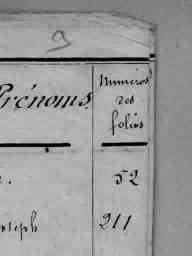 9
Prénoms. Numéros
des
folios
52
seph 211